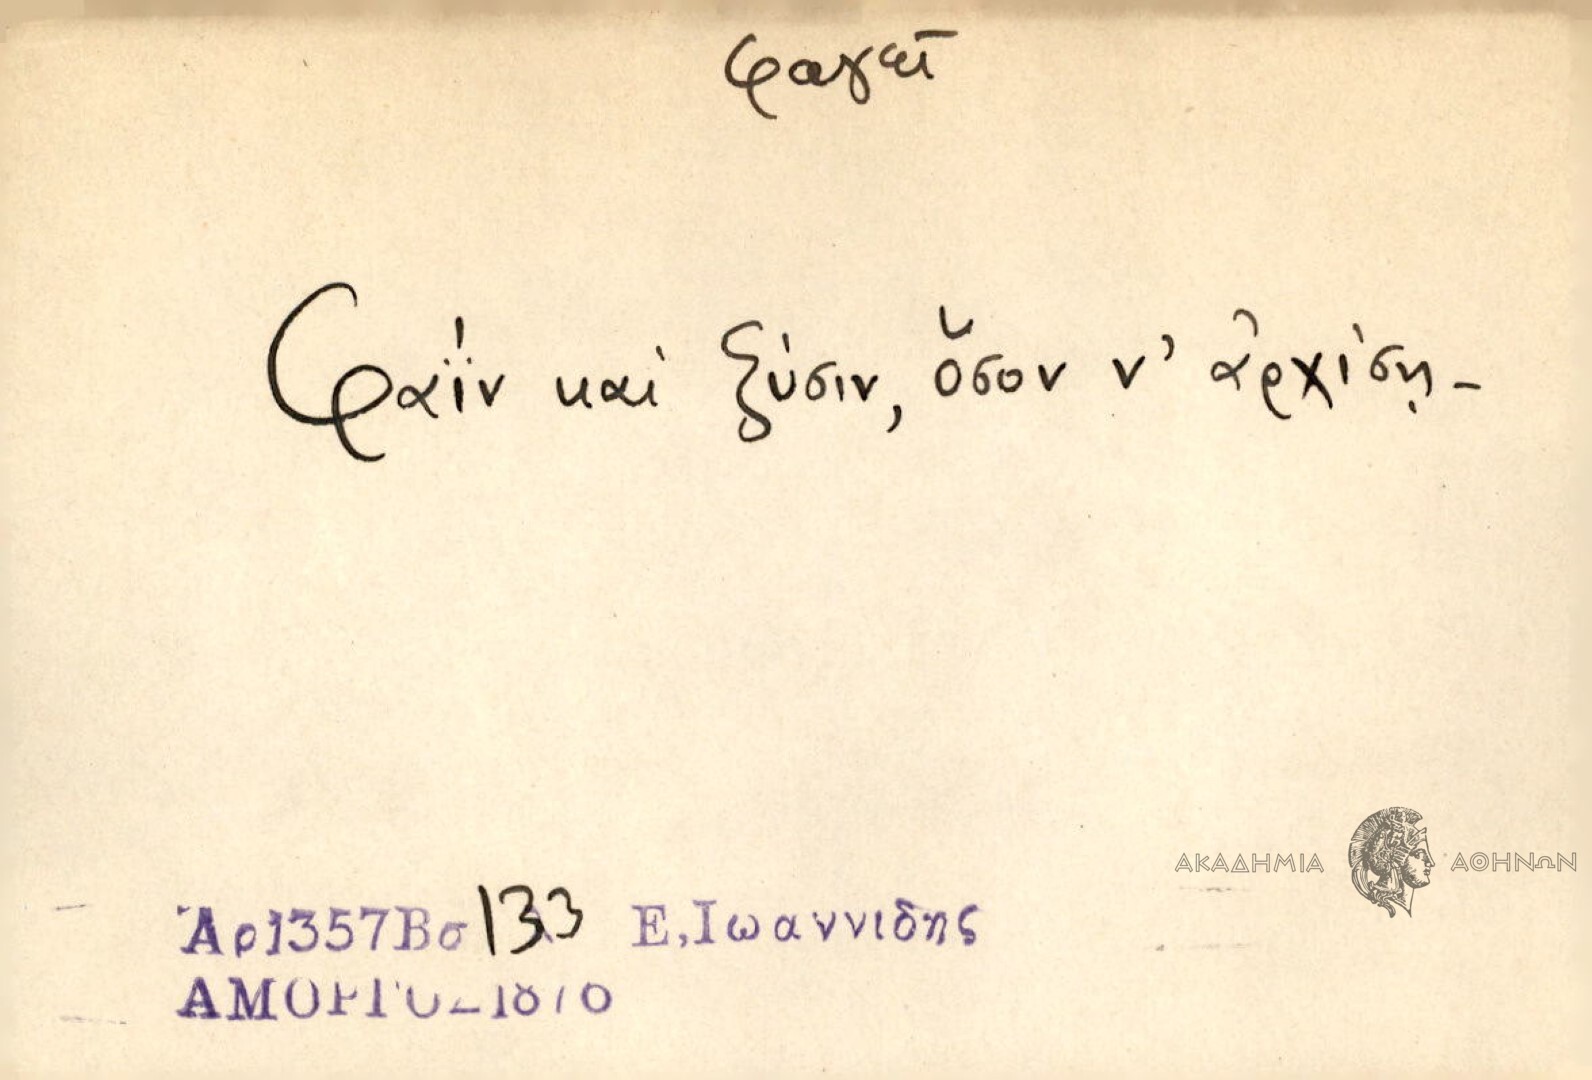 φαγεῖ
Φαΐν καὶ ξύσιν, ὅσον ν' ἀρχίσῃ -
ΑΚΑΔΗΜΙΑ ΑΘΗΝΩΝ
Ἀρ1357Βσ 133 Ε,Ιωαννιδης
ΑΜΟΡΓΟΣ 1876